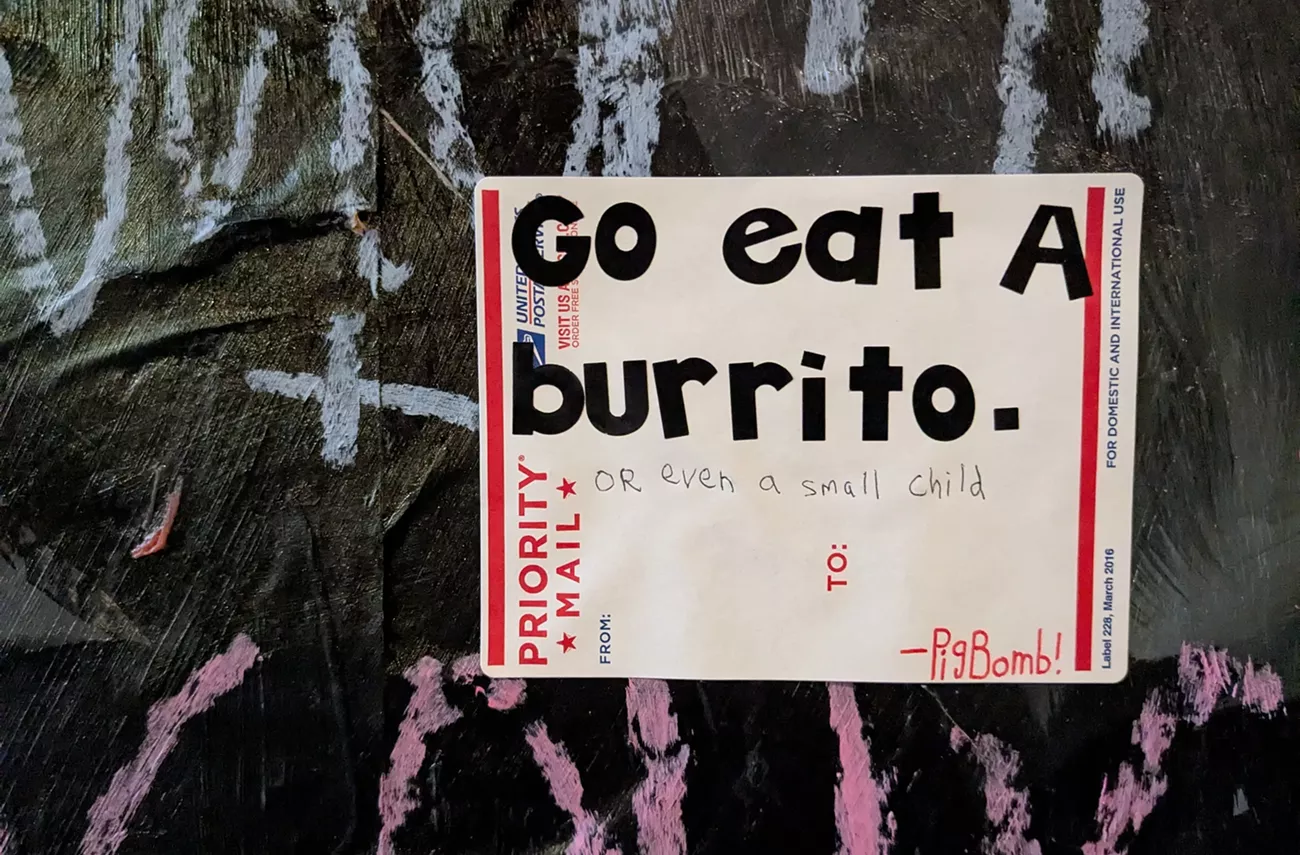 Go eat A
burrito.
OR even a small child
-PigBomb!
PRIORITY®
★ MAIL ★
FROM:
TO:
FOR DOMESTIC AND INTERNATIONAL USE
Label 228, March 2016
UNITED
POSTA
VISIT US
ORDER FREE S